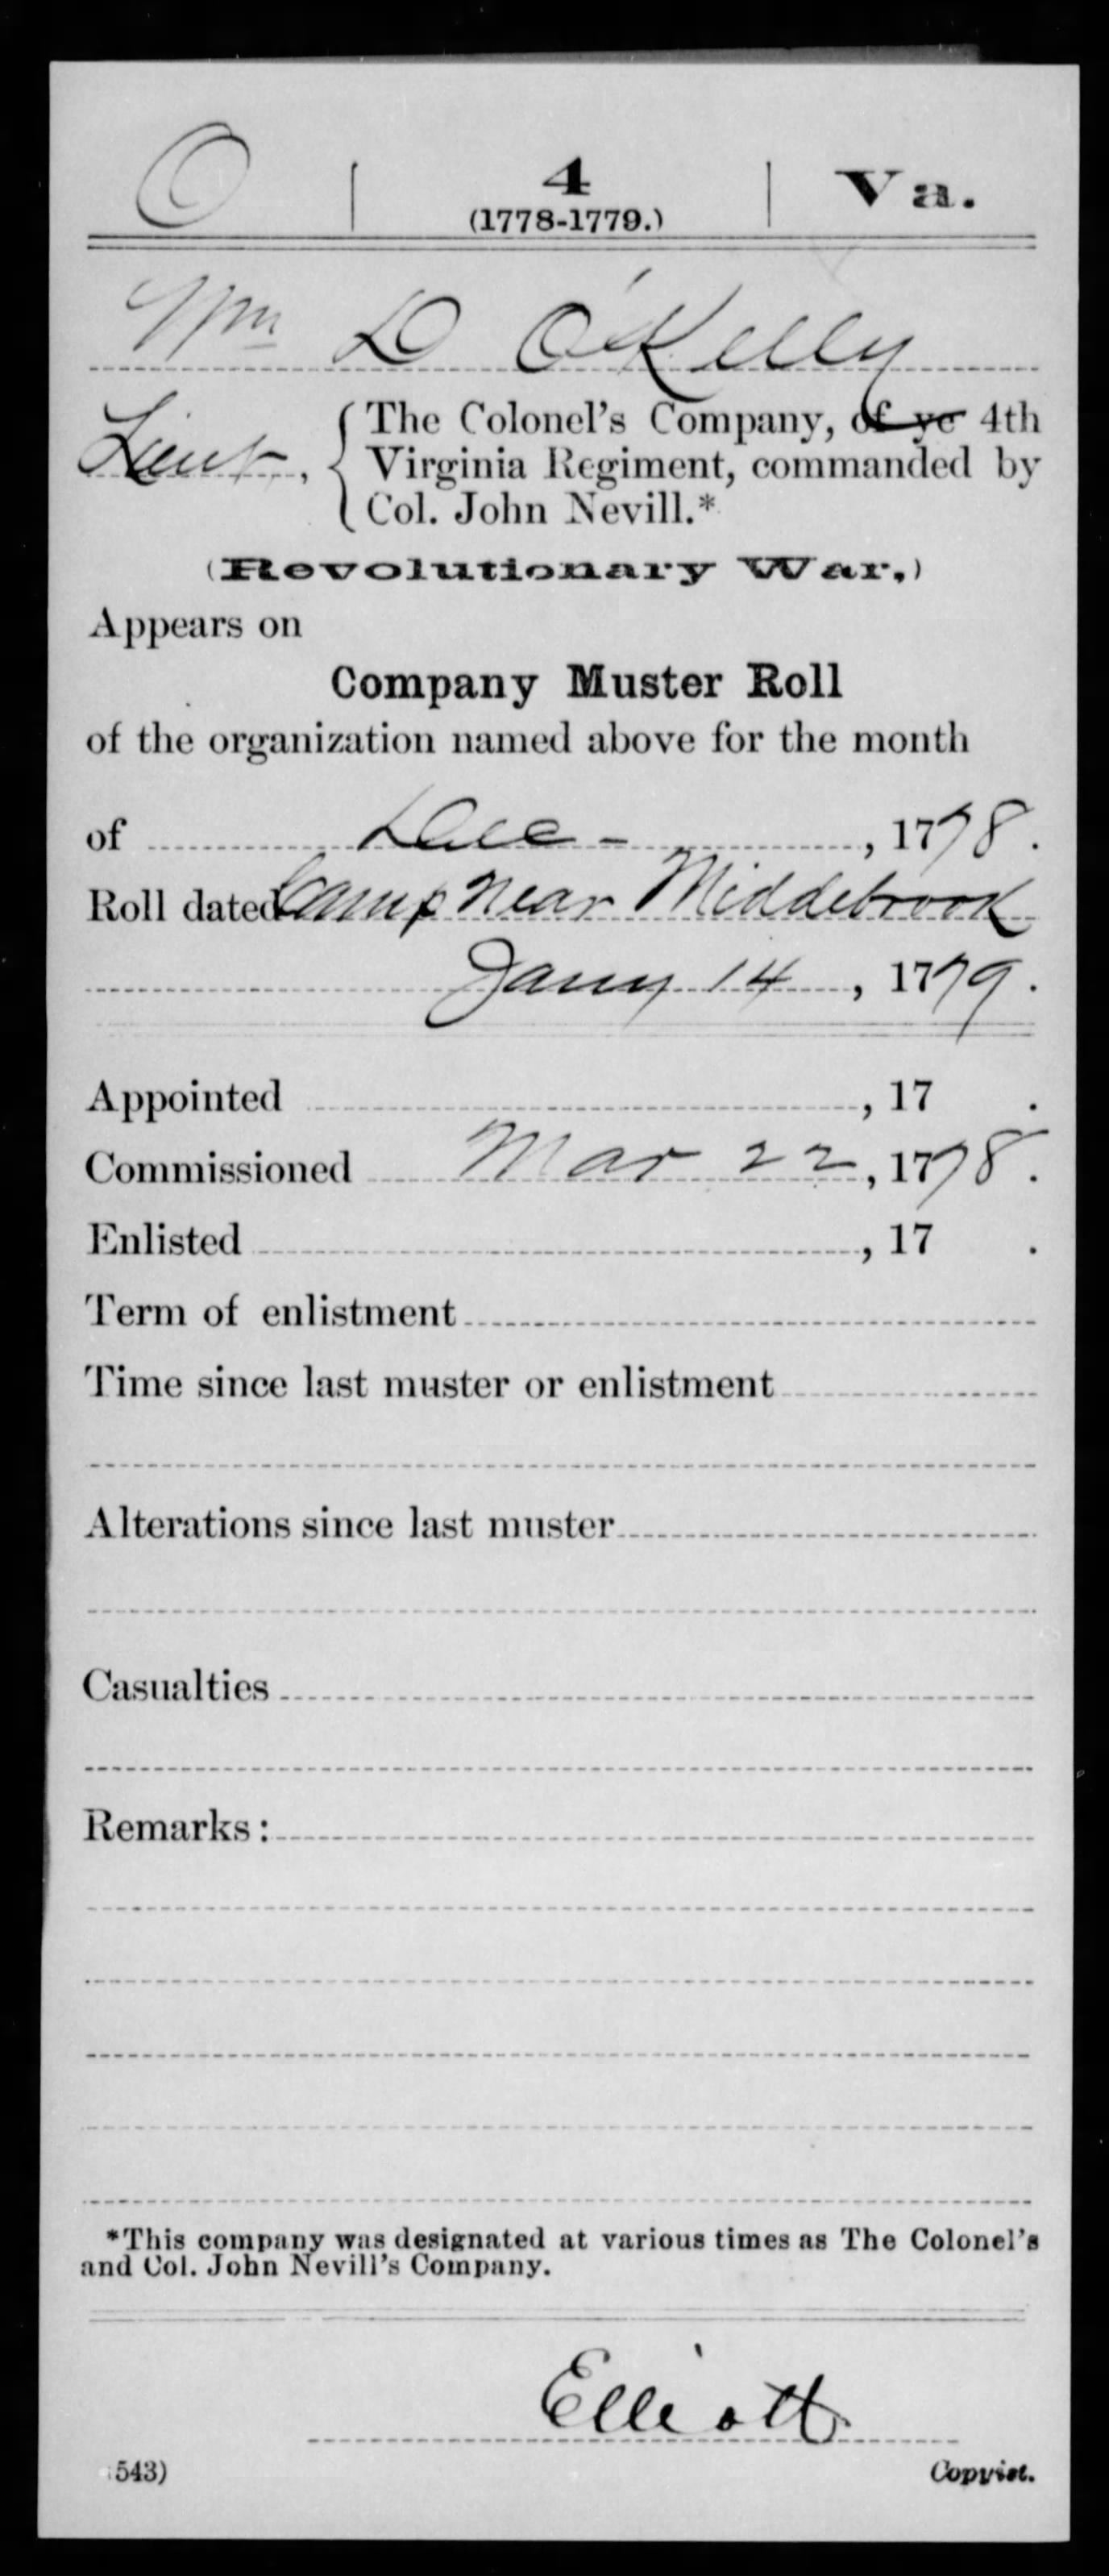 O | 4 | Va.
(1778-1779.)
Wm D O'Kelly
Lieut, { The Colonel's Company, of ye 4th
Virginia Regiment, commanded by
Col. John Nevill.*
(Revolutionary War.)
Appears on
Company Muster Roll
of the organization named above for the month
of Dec -, 1778.
Roll dated Camp near Middebrook
Jany 14, 1779.
Appointed , 17 .
Commissioned Mar 22, 1778.
Enlisted , 17 .
Term of enlistment
Time since last muster or enlistment
Alterations since last muster
Casualties
Remarks:
*This company was designated at various times as The Colonel's
and Col. John Nevill's Company.
Elliott
543) Copyist.